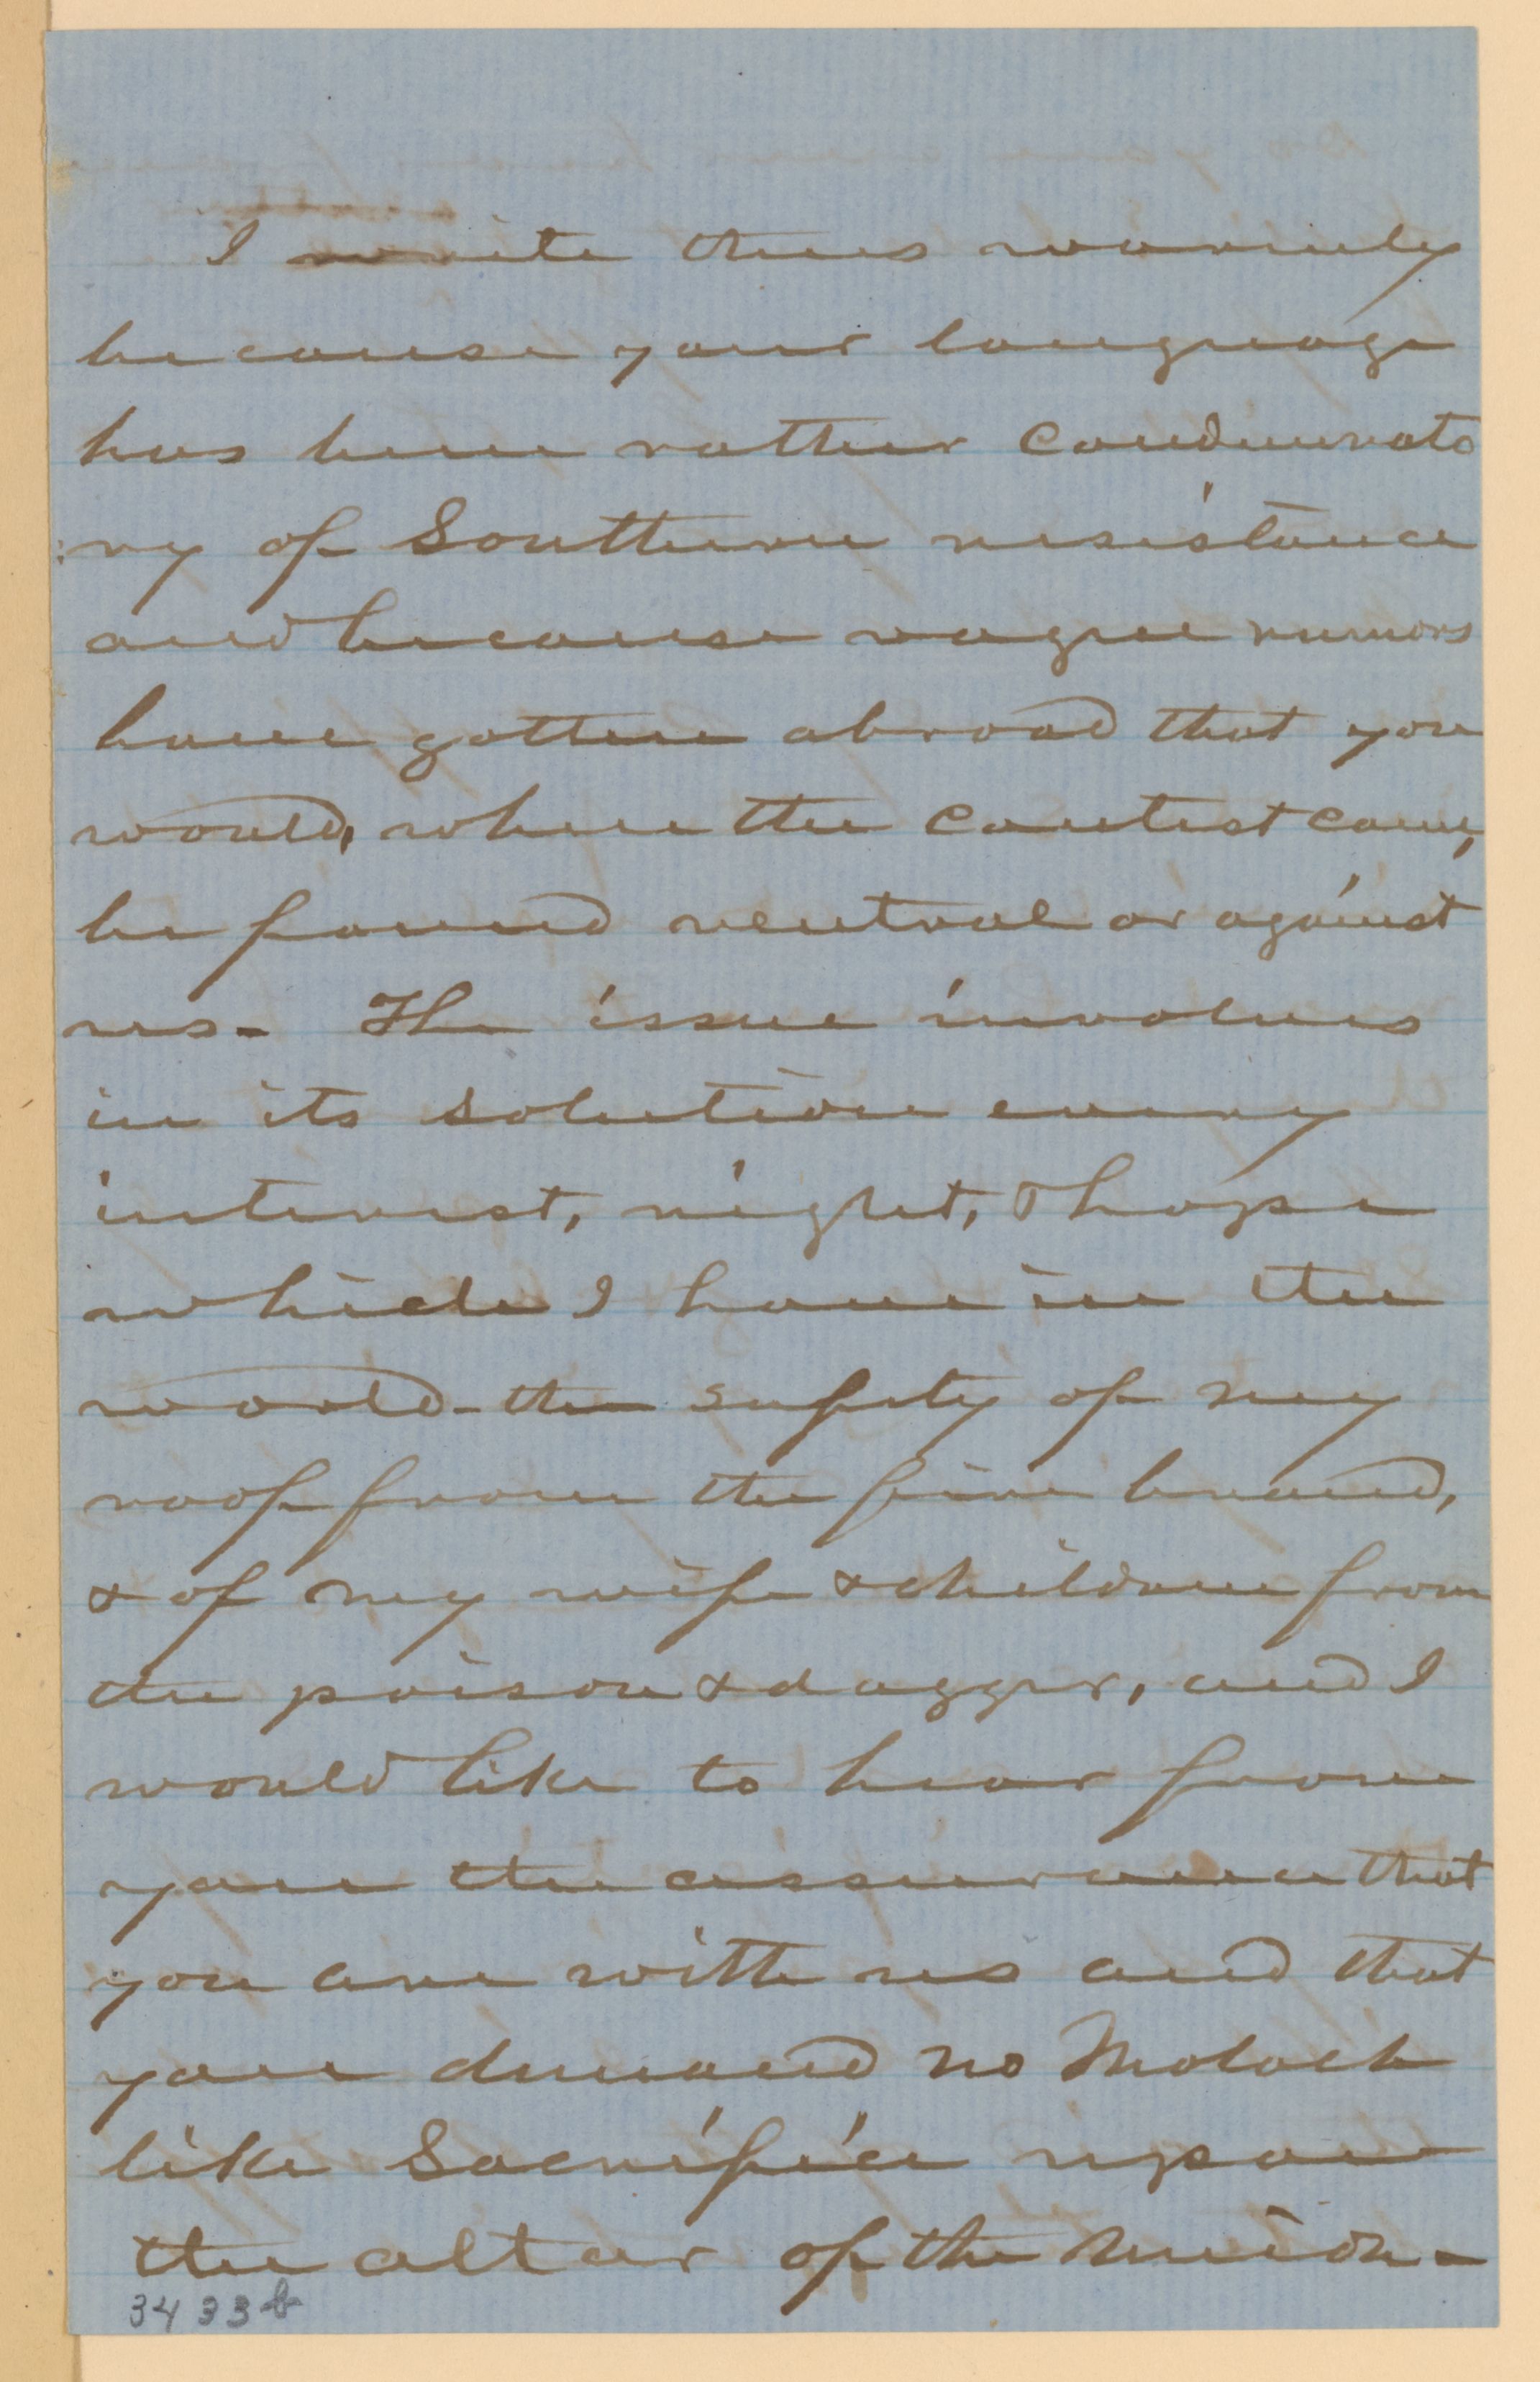 I write thus warmly
because your language
has been rather condemnato
:ry of Southern resistance
and because vague rumors
have gotten abroad that you
would, when the contest came,
be found neutral or against
us - The issue involves
in its solution every
interest, right, & hope
which I have in the
world - the safety of my
roof from the fire brand,
& of my wife & children from
the poison & dagger, and I
would like to hear from
you the assurance that
you are with us and that
you demand no Moloch
like Sacrifice upon
the altar of the Union -
3433b